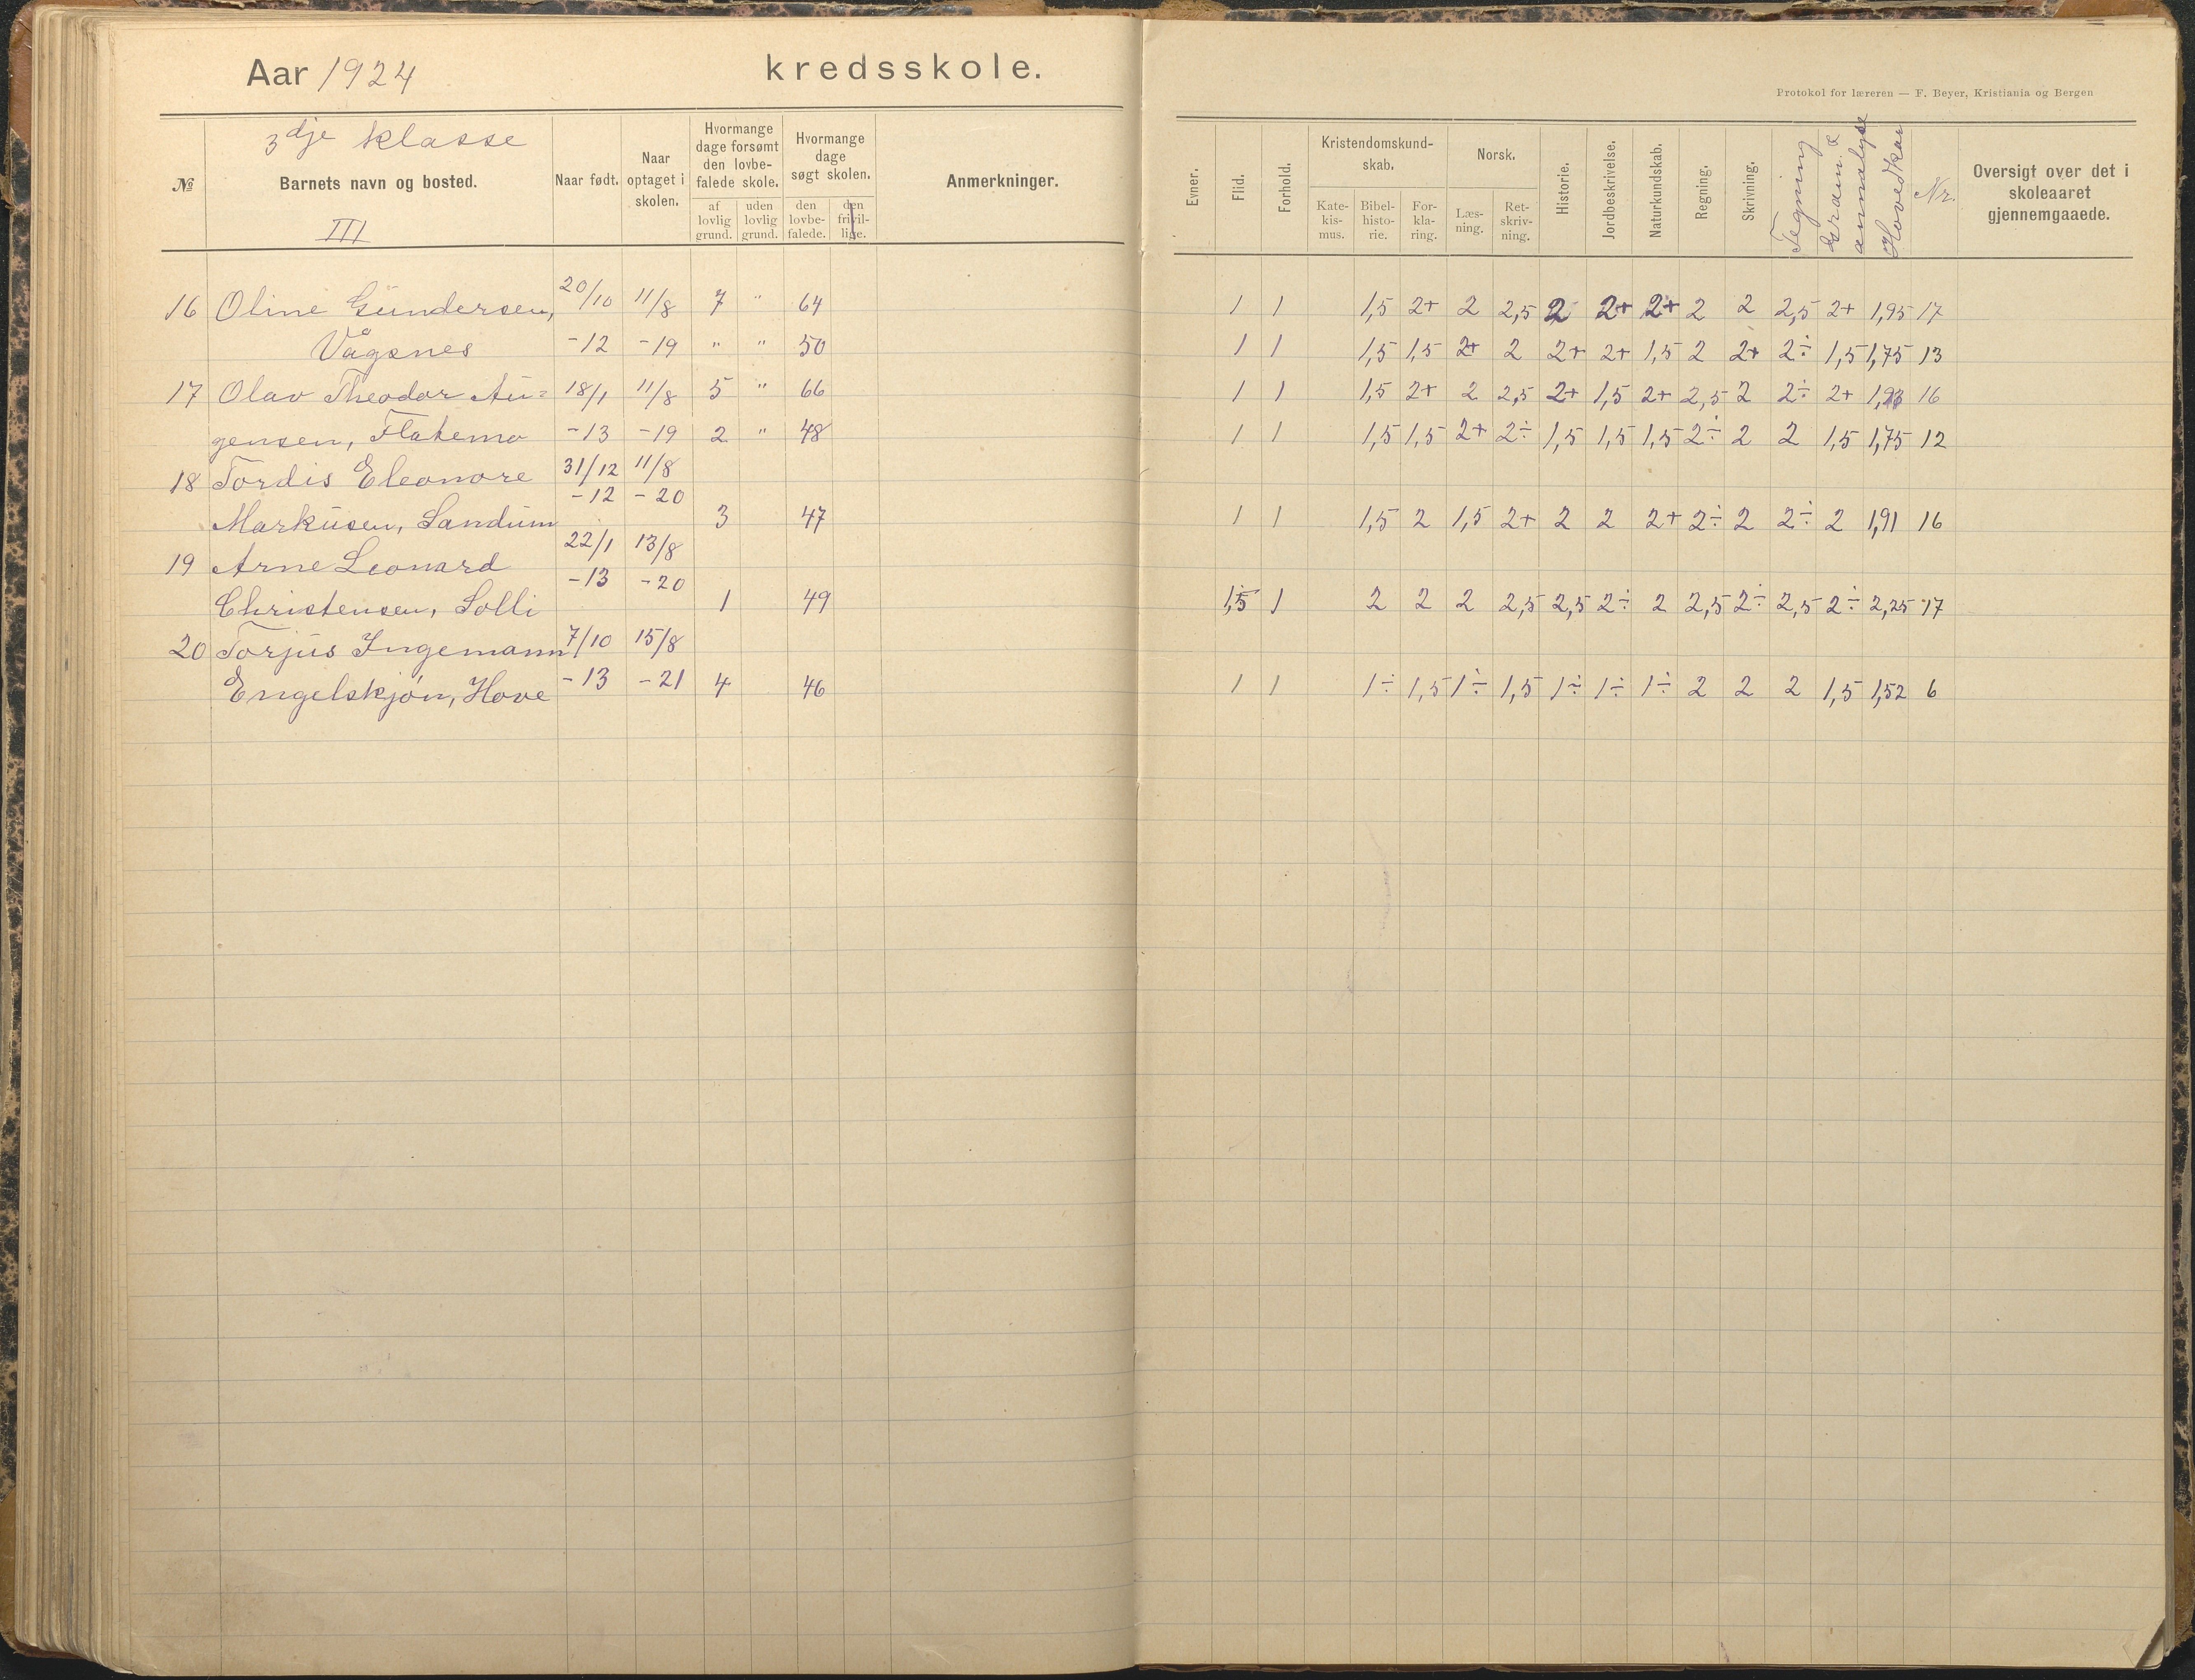 Aar 1924 kredsskole.
Protokol for læreren — F. Beyer, Kristiania og Bergen
№
3dje klasse
Barnets navn og bosted.
III
Naar født.
Naar optaget i skolen.
Hvormange dage forsømt den lovbefalede skole.
af lovlig grund.
uden lovlig grund.
Hvormange dage søgt skolen.
den lovbe-falede.
den frivil-lige.
Anmerkninger.
Evner.
Flid.
Forhold.
Kristendomskund-skab.
Kate-kis-mus.
Bibel-histo-rie.
For-kla-ring.
Norsk.
Læs-ning.
Ret-skriv-ning.
Historie.
Jordbeskrivelse.
Naturkundskab.
Regning.
Skrivning.
Tegning
Gram. &
annalyse
Hovedkar
Nr.
Oversigt over det i skoleaaret gjennemgaaede.
16 Oline Gundersen, 20/10 11/8 7 " 64 1 1 1,5 2+ 2 2,5 2 2+ 2+ 2 2 2,5 2+ 1,95 17
Vågsnes -12 -19 " " 50 1 1 1,5 1,5 2+ 2 2+ 2+ 1,5 2 2+ 2÷ 1,5 1,75 13
17 Olav Theodor Au= 18/1 11/8 5 " 66 1 1 1,5 2+ 2 2,5 2+ 1,5 2+ 2,5 2 2÷ 2+ 1,93 16
gensen, Flatemo -13 -19 2 " 48 1 1 1,5 1,5 2+ 2÷ 1,5 1,5 1,5 2÷ 2 2 1,5 1,75 12
18 Tordis Eleonore 31/12 11/8
-12 -20
Markusen, Sandum 3 47 1 1 1,5 2 1,5 2+ 2 2 2+ 2÷ 2 2÷ 2 1,91 16
22/1 13/8
19 Arne Leonard
-13 -20
Christensen, Solli 1 49 1,5 1 2 2 2 2,5 2,5 2÷ 2 2,5 2÷ 2,5 2÷ 2,25 17
20 Torjus Ingemann 7/10 15/8
Engelskjøn, Hove -13 -21 4 46 1 1 1÷ 1,5 1÷ 1,5 1÷ 1÷ 1÷ 2 2 2 1,5 1,52 6